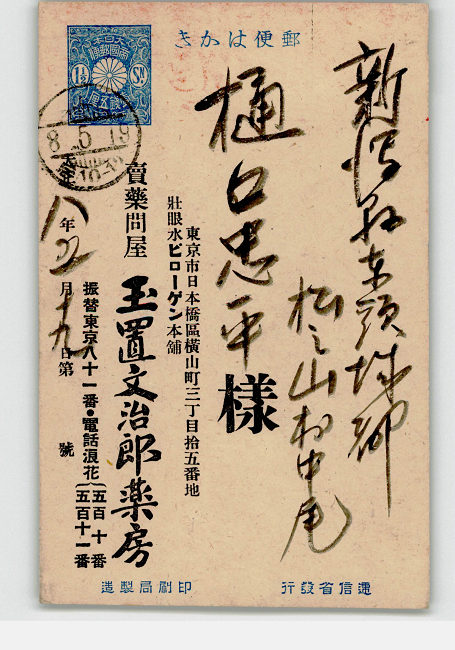 郵便はがき
大日本
帝國郵便
1½ Sn.
8.5.19
新潟縣東頸城郡
松之山村中尾
樋口忠平
様
東京市日本橋區横山町三丁目拾五番地
壯眼水ピローゲン本舗
賣藥問屋
玉置文治郎藥房
振替東京八十一番●電話浪花{五百十番 五百十一番
八年五月十九日第 號
造製局刷印
行發省信遞